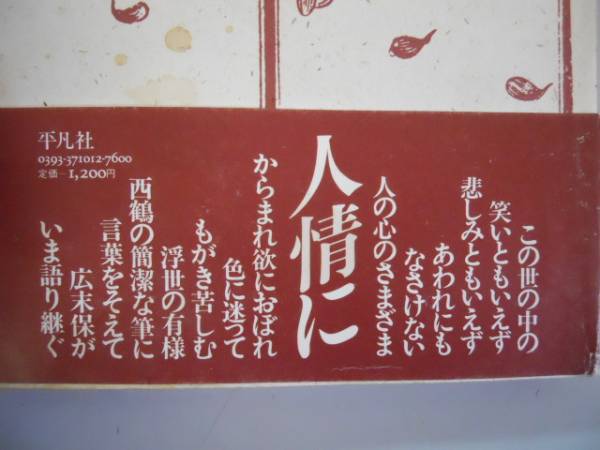 この世の中の
笑いともいえず
悲しみともいえず
あわれにも
なさけない
人の心のさまざま
人情に
からまれ欲におぼれ
色に迷って
もがき苦しむ
浮世の有様
西鶴の簡潔な筆に
言葉をそえて
広末保が
いま語り継ぐ
平凡社
0393-371012-7600
定価─1,200円